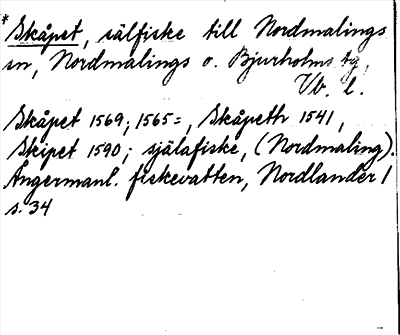 * Skåpet, sälfiske till Nordmalings
sn, Nordmalings o. Bjurholms tg,
Vb. l.
Skåpet 1569; 1565=, Skåpeth 1541,
Skipet 1590; själafiske, (Nordmaling).
Ångermanl. fiskevatten, Nordlander 1
s. 34